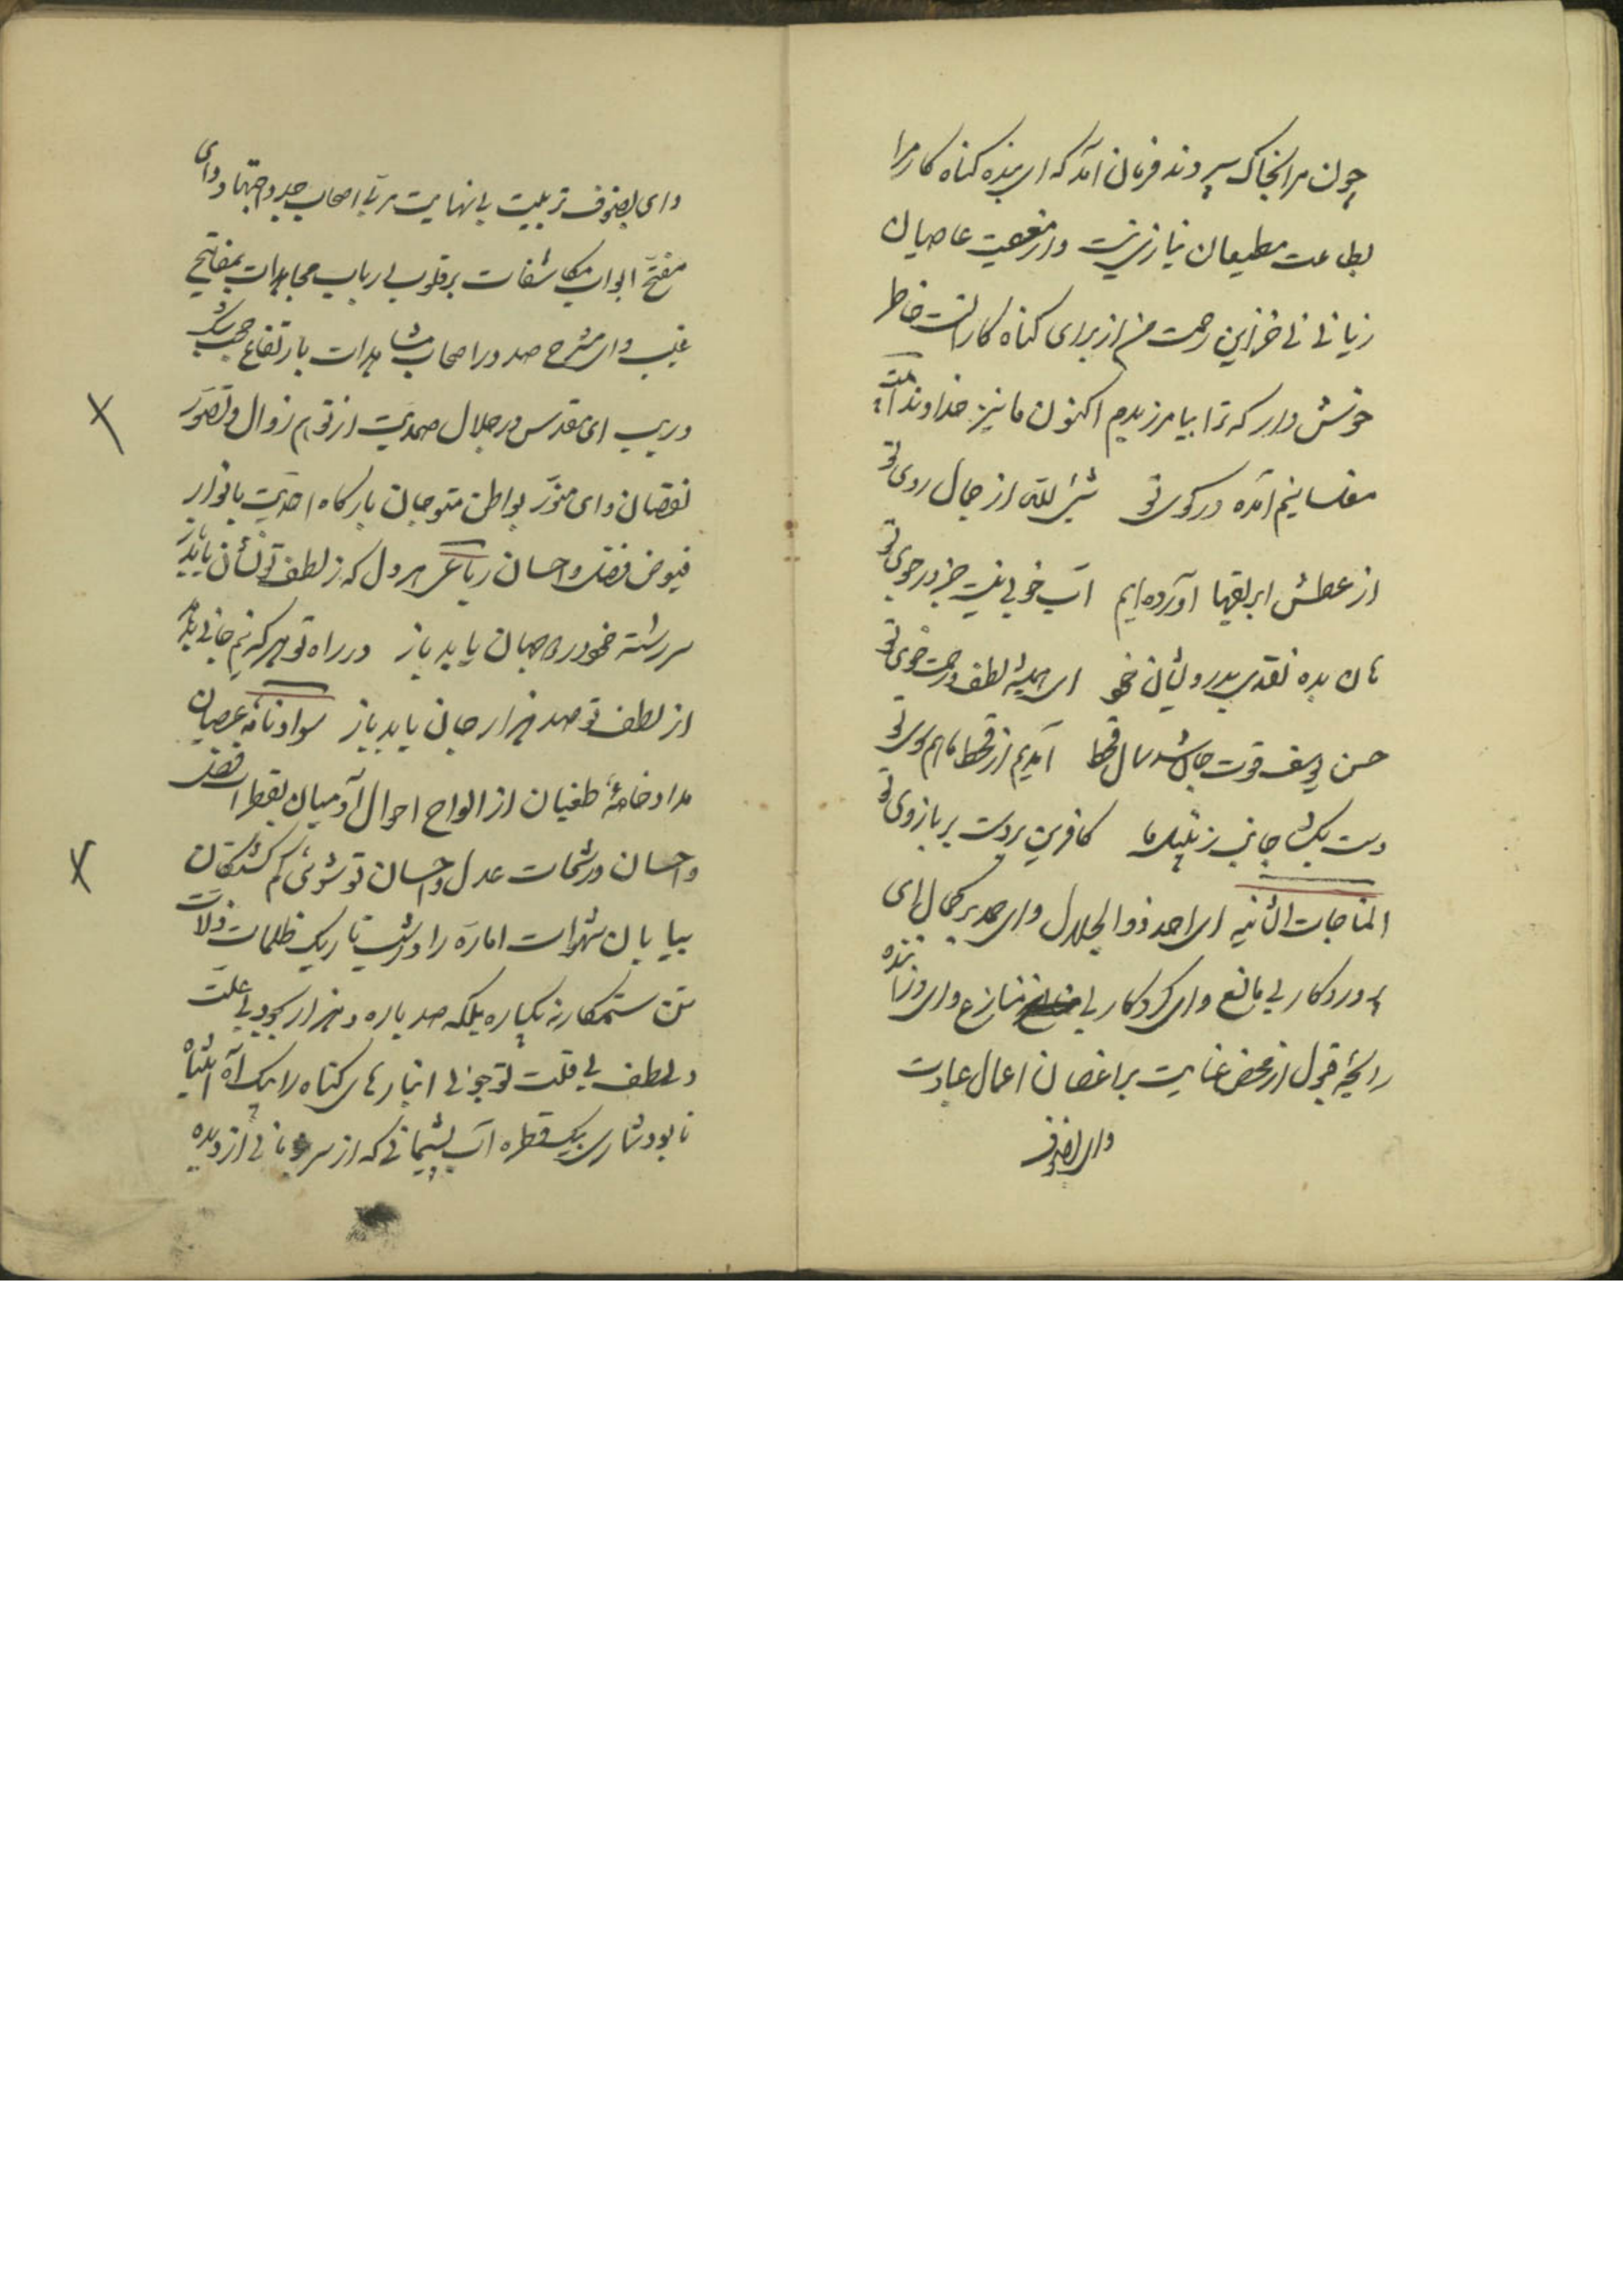 چون مرا بخاک سپردند فرمان آمد که ای بنده کناه کار مرا
بطاعت مطیعان نیازی نیست و از معصیت عاصیان
زیانی نی خزاین رحمت من از برای کناه کارانست خاطر
خوش دار که ترا بیامرزیدم اکنون ما نیز خداوندا
مفلسانیم آمده در کوی تو شیئ لله از جمال روی تو
از عطش ابریقها آورده‌ایم آب خوبی نیست جز در جوی تو
هان بده نقدی بدرویشان خود ای همیشه لطف و رحمت خوی تو
حسن یوسف قوت جان شد سال قحط آمدیم از قحط ما هم سوی تو
دست بکشا جانب زنبیل ما کافرین بر دست و بر بازوی تو
المناجات الثانیه ای احد ذو الجلال و ای صمد بر کمال ای
پروردکار بی مانع و ای کردکار بی منازع و ای وزاننده
رایحهٔ قبول از محض عنایت بر اغصان اعمال عبادت
و ای بصنوف
و ای بصنوف تربیت بانهایت مربی اصحاب جد و اجتهاد و ای
مفتح ابواب مکاشفات بر قلوب ارباب مجاهدات بمفاتیح
غیب و ای مشرح صدور اصحاب مشاهدات بارتفاع حجب شک
و ریب ای مقدس در جلال صمدیت از توهم زوال و تصور
نقصان و ای منور بواطن متوجهان بارکاه احدیت بانوار
فیوض فضل و احسان رباعی هر دل که ز لطف تو نشان یابد باز
سررشته خود در دو جهان یابد باز در راه تو هر که نیم جانی بدهد
از لطف تو صد هزار جان یابد باز سواد نامهٔ عصیان
مداد خامهٔ طغیان از الواح احوال آدمیان بقطرات فضل
و احسان و رشحات عدل و احسان تو شوئی کم کشتکان
بیابان شهوات اماره را در شب تاریک ظلمات و لات
تن ستمکار نه یکباره بلکه صد باره و هزار بجود بی علت
و لطف بی قلت تو جوئی انبارهای کناه را بیک آه
نابود شماری بیک قطره آب پشیمانی که از سر از دیده